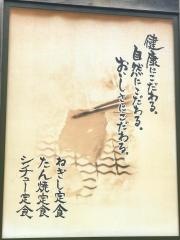 健康にこだわる。
自然にこだわる。
おいしさにこだわる。
ねぎし定食
たん焼定食
シチュー定食